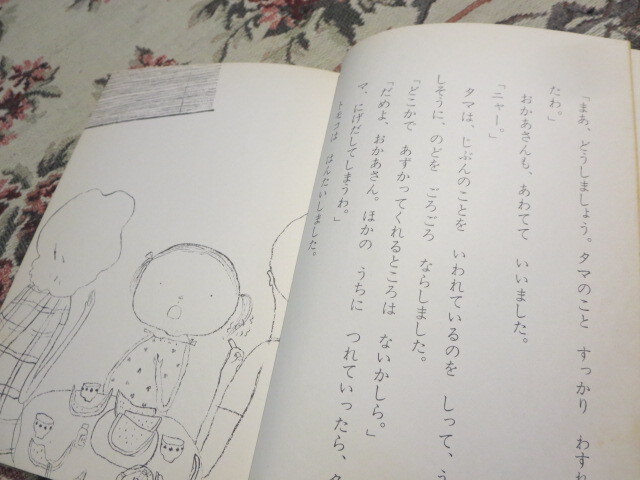 「まあ、どうしましょう。タマのこと　すっかり　わすれ
たわ。」
おかあさんも、あわてて　いいました。
「ニャー。」
タマは、じぶんのことを　いわれているのを　しって、う
しそうに、のどを　ごろごろ　ならしました。
「どこかで　あずかってくれるところは　ないかしら。」
「だめよ、おかあさん。ほかの　うちに　つれていったら、タ
マ、にげだしてしまうわ。」
トモコは　はんたいしました。